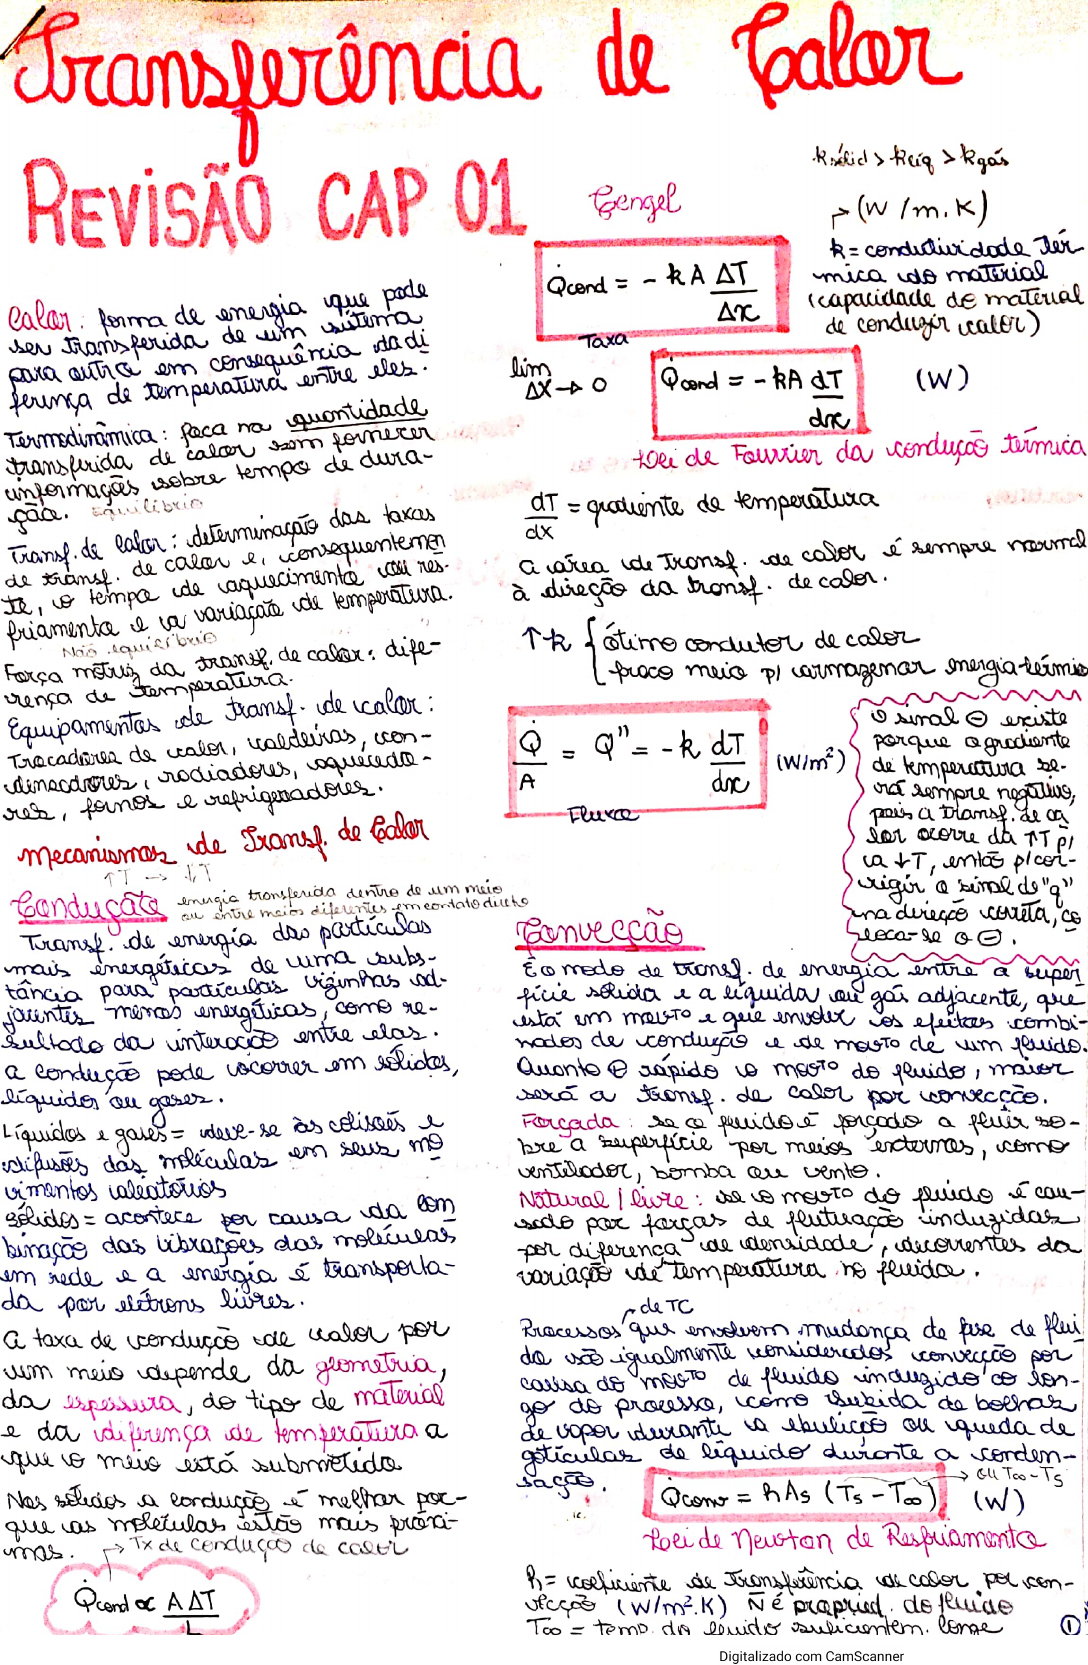 Transferência de Calor
REVISÃO CAP 01
Calor: forma de energia que pode
ser transferida de um sistema
para outro em consequência da di
ferença de temperatura entre eles.
Termodinâmica: foca na quantidade
transferida de calor sem fornecer
informações sobre tempo de dura-
ção. Equilíbrio
Transf. de Calor: determinação das taxas
de transf. de calor e, consequentemen
te, o tempo de aquecimento ou res-
friamento e a variação de temperatura.
Não equilíbrio
Força motriz da transf. de calor: dife-
rença de temperatura.
Equipamentos de transf. de calor:
Trocadores de calor, caldeiras, con-
densadores, radiadores, aquecedo-
res, fornos e refrigeradores.
Mecanismos de Transf. de Calor
↑T → ↓T
Condução energia transferida dentro de um meio
ou entre meios diferentes em contato direto
Transf. de energia das partículas
mais energéticas de uma subs-
tância para partículas vizinhas ad-
jacentes menos energéticas, como re-
sultado da interação entre elas.
A condução pode ocorrer em sólidos,
líquidos ou gases.
Líquidos e gases = deve-se às colisões e
difusões das moléculas em seus mo
vimentos aleatórios
Sólidos = acontece por causa da com
binação das vibrações das moléculas
em rede e a energia é transporta-
da por elétrons livres.
A taxa de condução de calor por
um meio depende da geometria,
da espessura, do tipo de material
e da diferença de temperatura a
que o meio está submetido
Nos sólidos a condução é melhor por-
que as moléculas estão mais próxi-
mas. → Tx de condução de calor
Q̇cond ∝ A ΔT
L
Çengel
ksólid > klíq > kgás
→ (W/m.K)
k = condutividade tér
mica do material
(capacidade do material
de conduzir calor)
Q̇cond = - k A ΔT
Δx
Taxa
lim
Δx → 0
Q̇cond = - kA dT
dx
(W)
Lei de Fourrier da condução térmica
dT = gradiente de temperatura
dx
A área de transf. de calor é sempre normal
à direção da transf. de calor.
↑k { ótimo condutor de calor
fraco meio p/ armazenar energia térmic
Q̇ = Q" = - k dT
A dx
(W/m²)
Fluxo
O sinal ⊖ existe
porque o gradiente
de temperatura se-
rá sempre negativo,
pois a transf. de ca
lor ocorre da ↑T p/
a ↓T, então p/ cor-
rigir o sinal de "q"
na direção correta, co
loca-se o ⊖.
Convecção
É o modo de transf. de energia entre a super
fície sólida e a líquida ou gás adjacente, que
está em movto e que envolve os efeitos combi
nados de condução e de movto de um fluido.
Quanto ⊕ rápido o movto do fluido, maior
será a transf. de calor por convecção.
Forçada: se o fluido é forçado a fluir so-
bre a superfície por meios externos, como
ventilador, bomba ou vento.
Natural / livre: se o movto do fluido é cau-
sado por forças de flutuação induzidas
por diferença de densidade, decorrentes da
variação de temperatura no fluido.
→ de TC
Processos que envolvem mudança de fase de flui
do são igualmente considerados convecção por
causa do movto de fluido induzido ao lon-
go do processo, como subida de bolhas
de vapor durante a ebulição ou queda de
gotículas de líquido durante a conden-
sação.
→ ou T∞ - Ts
Q̇conv = hAs (Ts - T∞) (W)
Lei de Newton de Resfriamento
h = coeficiente de transferência de calor por con-
vecção (W/m².K) Ñ é propried. do fluido
T∞ = temp. do fluido suficientem. longe
1
Digitalizado com CamScanner